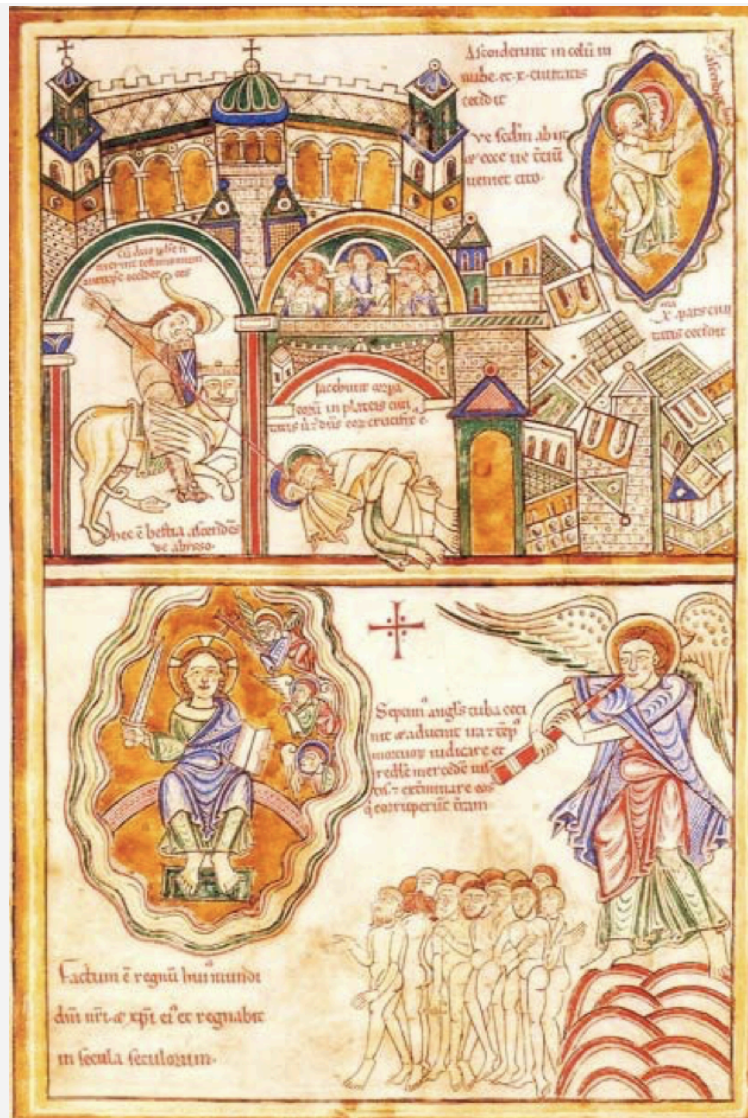 Ascenderunt in celū in
nube et x ciuitatis
cecidit
ve scdm abiit
& ecce ve tciū
ueniet cito.
x pars ciui
tatis cecidit
Iacebunt corpa
eoru in plateis ciui
tatis u & dūs eor crucifix ē.
hec ē bestia ascendēs
de abysso.
Septim angls tuba ceci
nit & aduenit ira & tēp
mortuor iudicare et
redde mercedē
exterminare eos
q corruperūt tram
Factum ē regnū hui mundi
dni nri & xpi ei et regnabit
in secula seculorum.